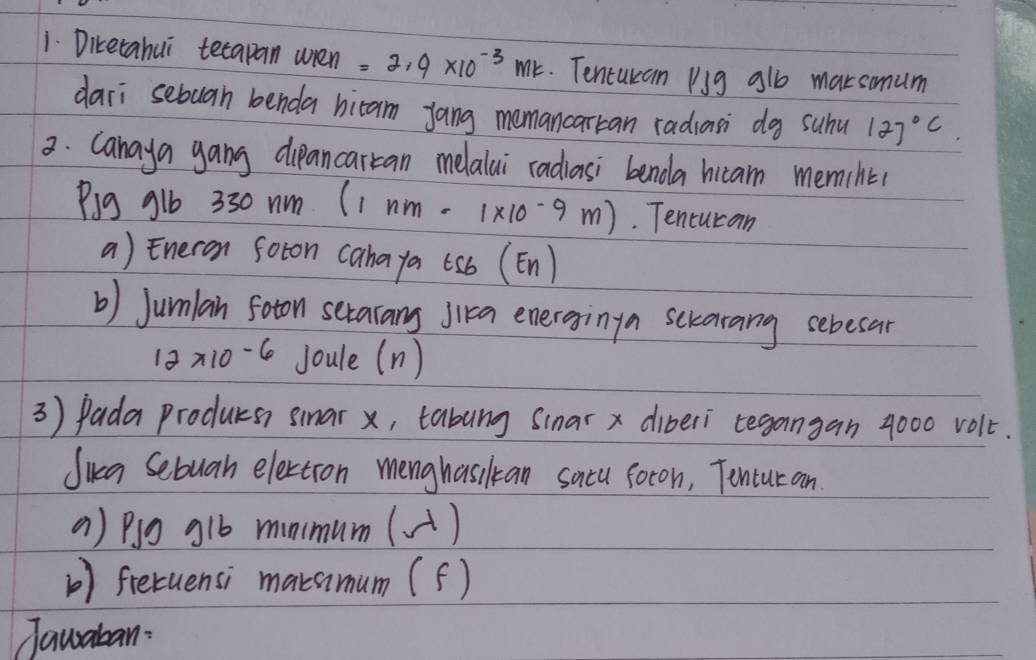 1. Diketahui tetapan wien = 2,9 x10⁻³ mk. Tentukan pjg glb maksimum
dari sebuah benda hitam yang memancarkan radiasi dg suhu 127°C.
2. Cahaya yang dipancarkan melalui radiasi benda hitam memiliki
Pjg glb 330 nm (1 nm = 1x10⁻⁹ m). Tentukan
a) Energi foton cahaya tsb (En)
b) Jumlah foton sekarang jika energinya sekarang sebesar
12 x10⁻⁶ Joule (n)
3) Pada produksi sinar x, tabung sinar x diberi tegangan 4000 volt.
Jika sebuah elektron menghasilkan satu foton, Tentukan.
a) Pjg glb minimum (λ)
b) frekuensi maksimum (f)
Jawaban: